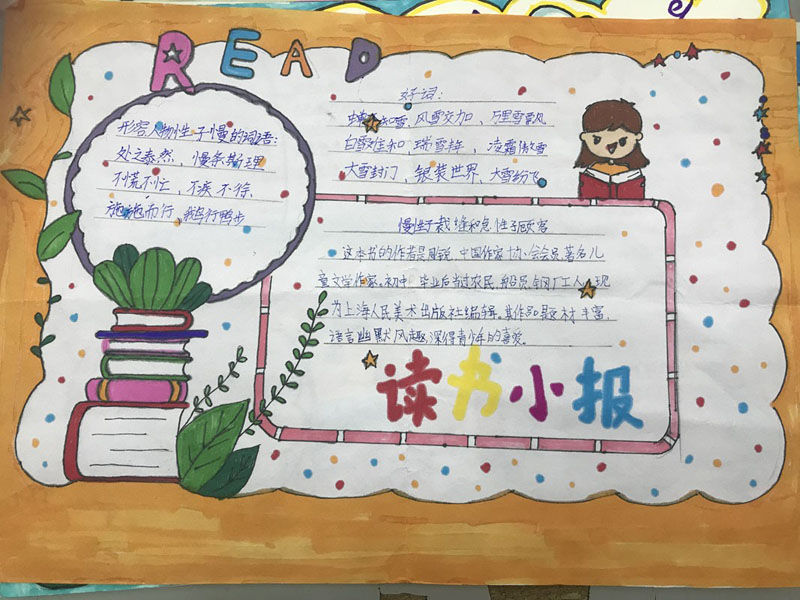 READ
形容人物性子慢的词语:
处之泰然、慢条斯理
不慌不忙、不疾不徐、
施施而行、鹅行鸭步
好词:
知雪、风雪交加、万里雪飘
白雪、瑞雪、凌霜傲雪
大雪封门、银装世界、大雪纷飞
慢性子裁缝和急性子顾客
这本书的作者是周锐,中国作家协会会员,著名儿
童文学作家。初中毕业后当过农民、船员、钢厂工人,现
为上海人民美术出版社编辑。其作品题材丰富,
语言幽默风趣,深得青少年的喜爱。
读书小报